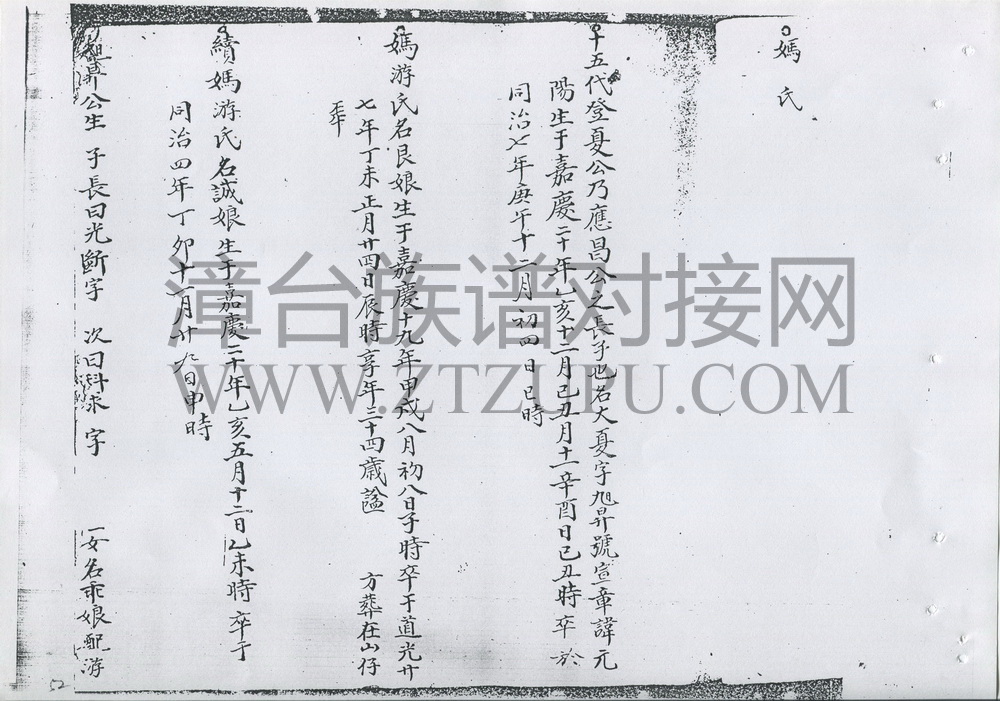 媽 氏
十五代登夏公乃應昌公之長子也名大夏字旭昇號宣章諱元
陽生于嘉慶二十年乙亥十二月己丑月十一辛酉日己丑時卒於
同治七年庚午十二月初四日巳時
媽游氏名良娘生于嘉慶十九年甲戌八月初八日子時卒于道光廿
七年丁未正月廿四日辰時享年三十四歲謚 方葬在山仔
續媽游氏名誠娘生于嘉慶二十年乙亥五月十二日乙未時卒于
同治四年丁卯十一月廿九日申時
旭昇公生 子長曰光斷字 次曰科球 字 一女名乖娘配游
52
漳台族谱对接网
WWW.ZTZUPU.COM